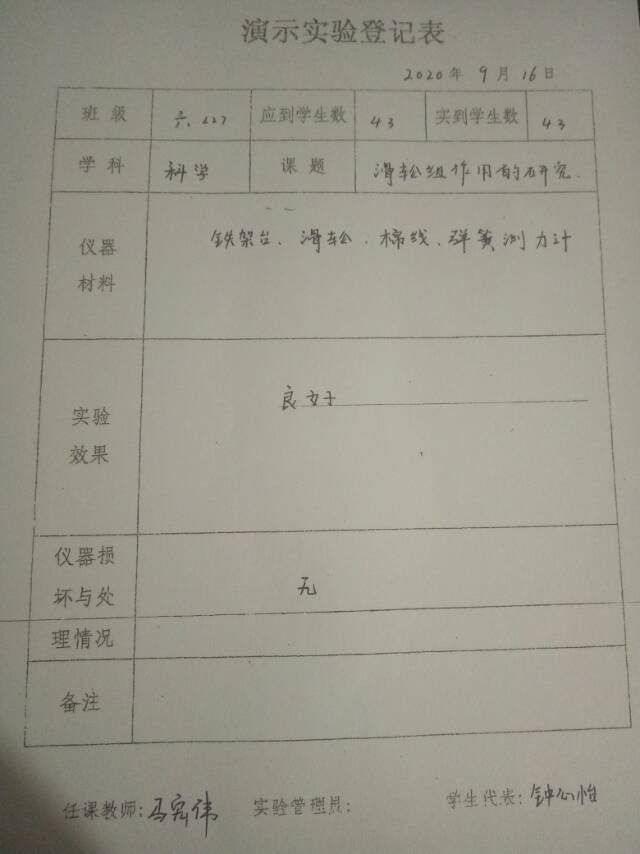 演示实验登记表
2020年 9月 16日
班级 六、227 应到学生数 43 实到学生数 43
学科 科学 课题 滑轮组作用的研究.
仪器材料 铁架台、滑轮、棉线、弹簧测力计
实验效果 良好
仪器损坏与处理情况 无
备注
任课教师: 马宏伟 实验管理员: 学生代表: 钟心怡